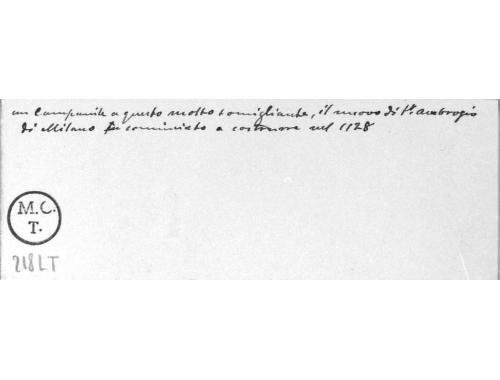 un Campanile a questo molto somigliante, il nuovo di St. Ambrogio
di Milano fu cominciato a costruire nel 1128
M.C.
T.
218LT